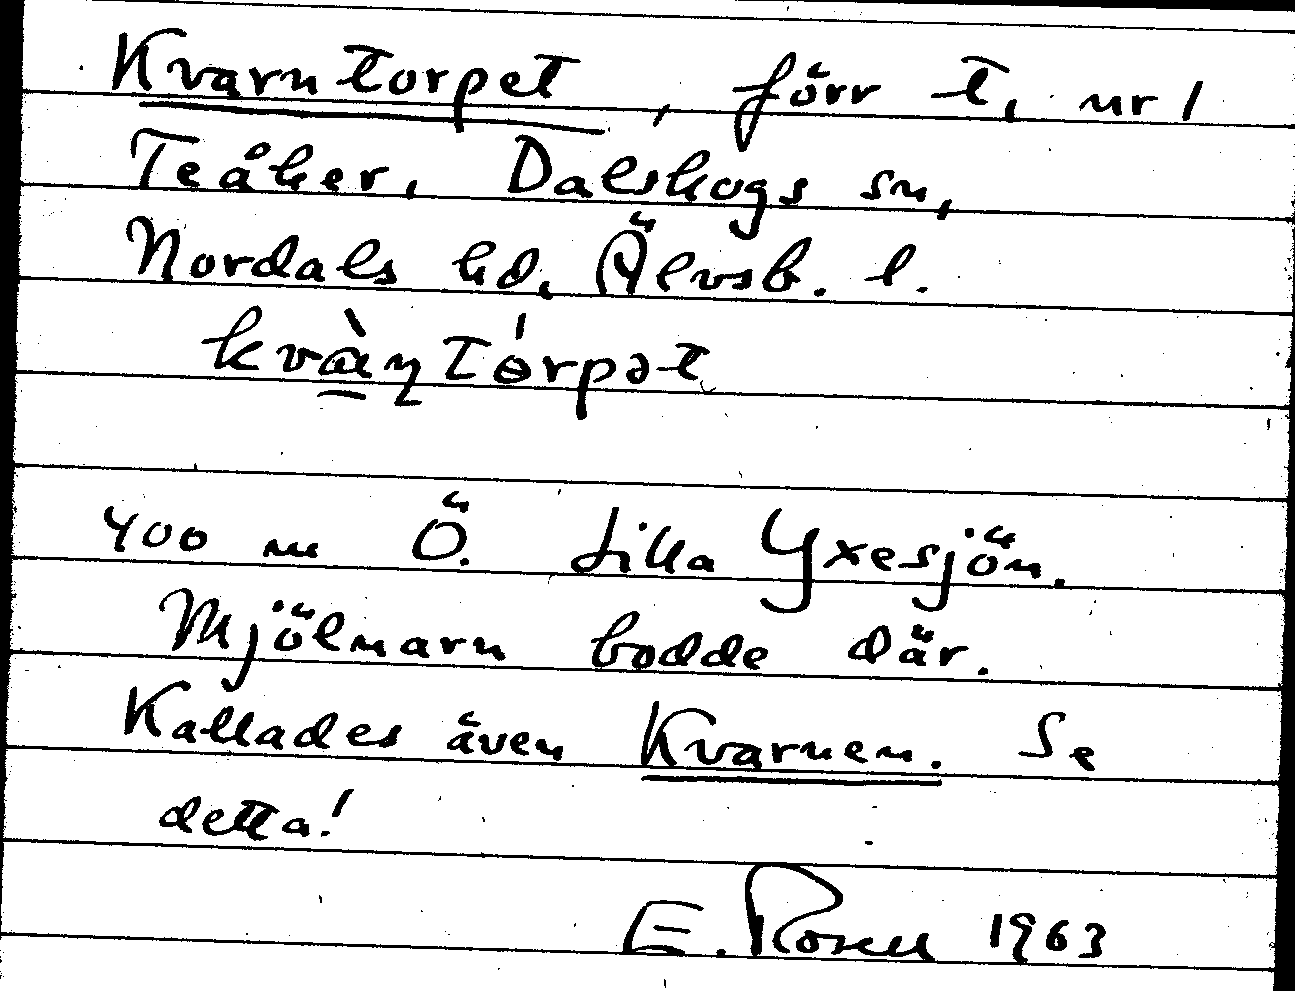 Kvarntorpet, förr t, nr 1
Teåker, Dalskogs sn,
Nordals hd, Älvsb. l.
kvàɳtórpət
400 m Ö. Lilla Yxesjön.
Mjölnarn bodde där.
Kallades även Kvarnen. Se
detta!
E. Rosell 1963